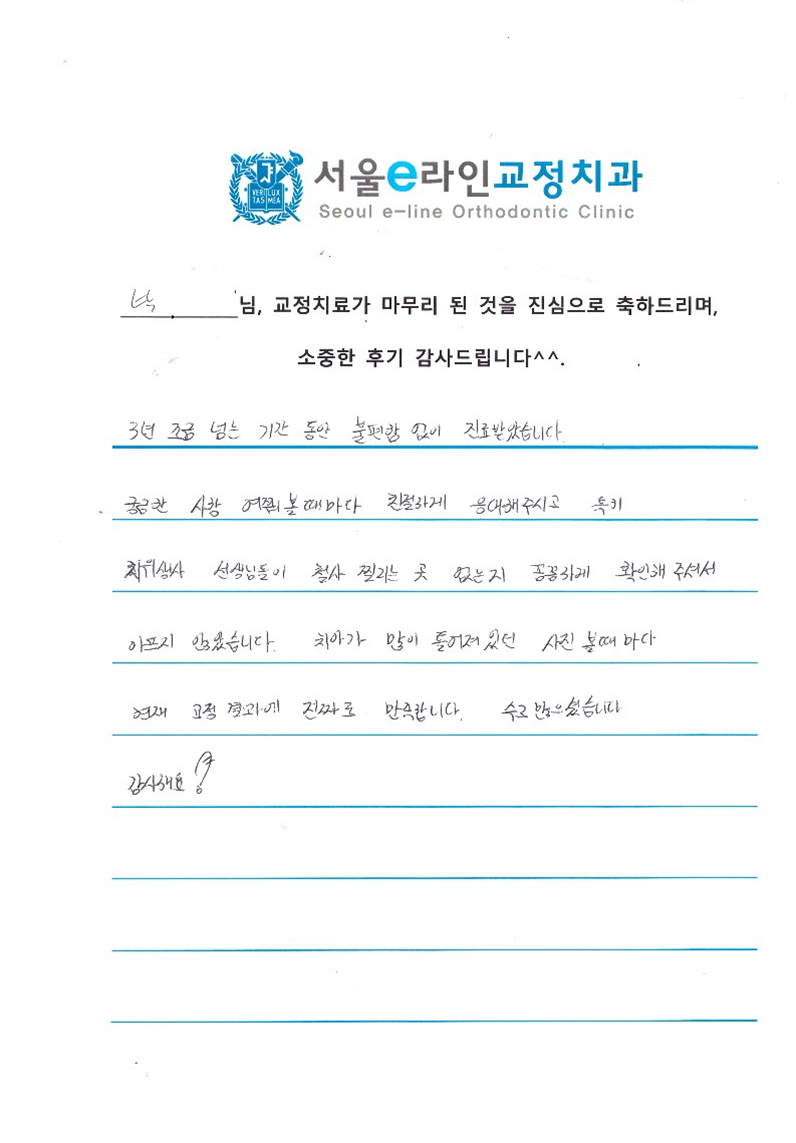 VERI LUX TAS MEA
서울e라인교정치과
Seoul e-line Orthodontic Clinic
박 님, 교정치료가 마무리 된 것을 진심으로 축하드리며,
소중한 후기 감사드립니다^^.
3년 조금 넘는 기간 동안 불편함 없이 진료받았습니다.
궁금한 사항 여쭤볼때마다 친절하게 응대해주시고 특히
치위생사 선생님들이 철사 찔리는 곳 없는지 꼼꼼하게 확인해 주셔서
아프지 않았습니다. 치아가 많이 틀어져있던 사진 볼때마다
현재 교정 결과에 진짜로 만족합니다. 수고 많으셨습니다
감사해요!